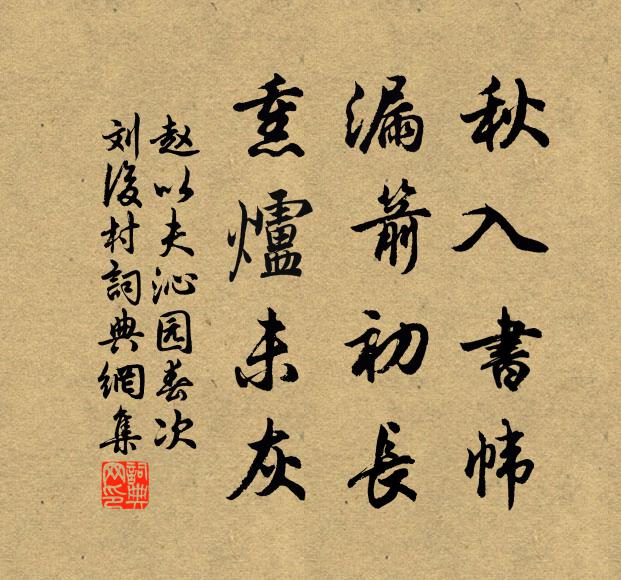 秋入書幃
漏箭初長
熏爐未灰
赵以夫沁园春次
刘後村詞典網集
詞典网印